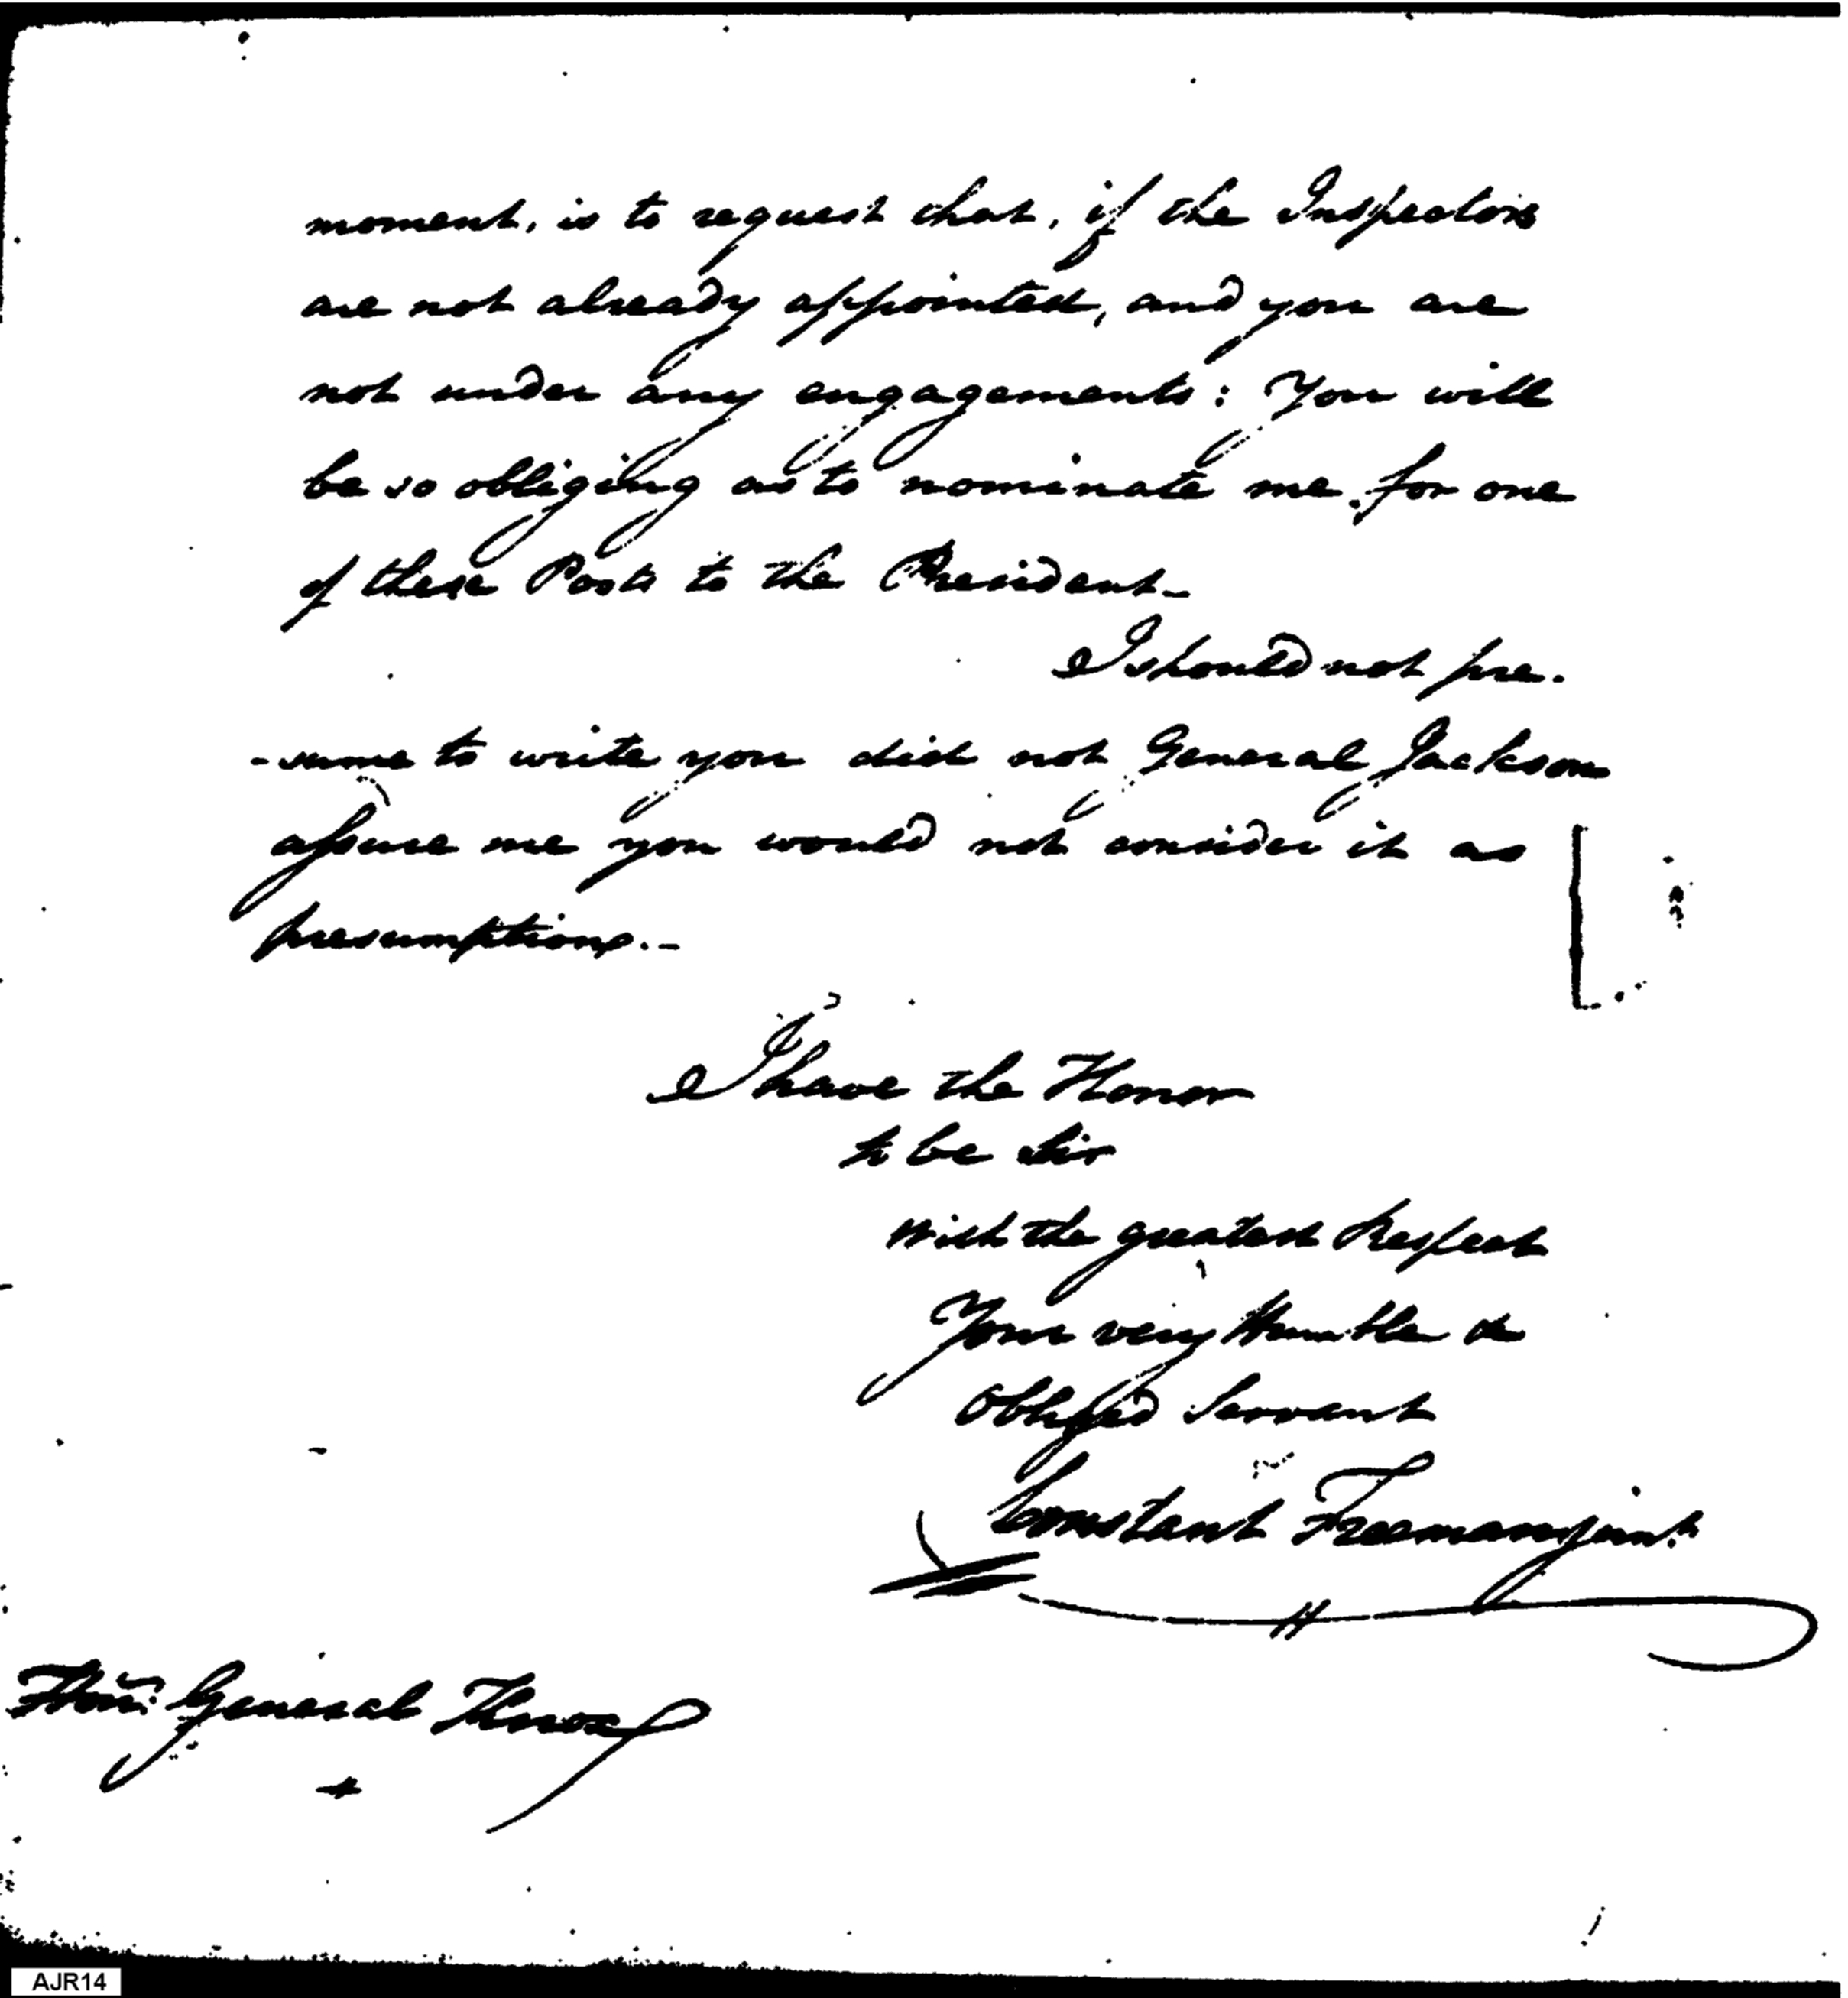 moment, is to request that, if the Inspectors
are not already appointed, and you are
not under any engagements: You will
be so obliging as to nominate me for one
of these Posts to the President_
I should not pre-
-sume to write you did not General Jackson
assure me you would not consider it as
presumptions.-
I have the Honor
to be Sir
With the greatest Respect
Your very Humble &
Obliged Servant
Constant Freeman junr.
Honr. General Knox
AJR14